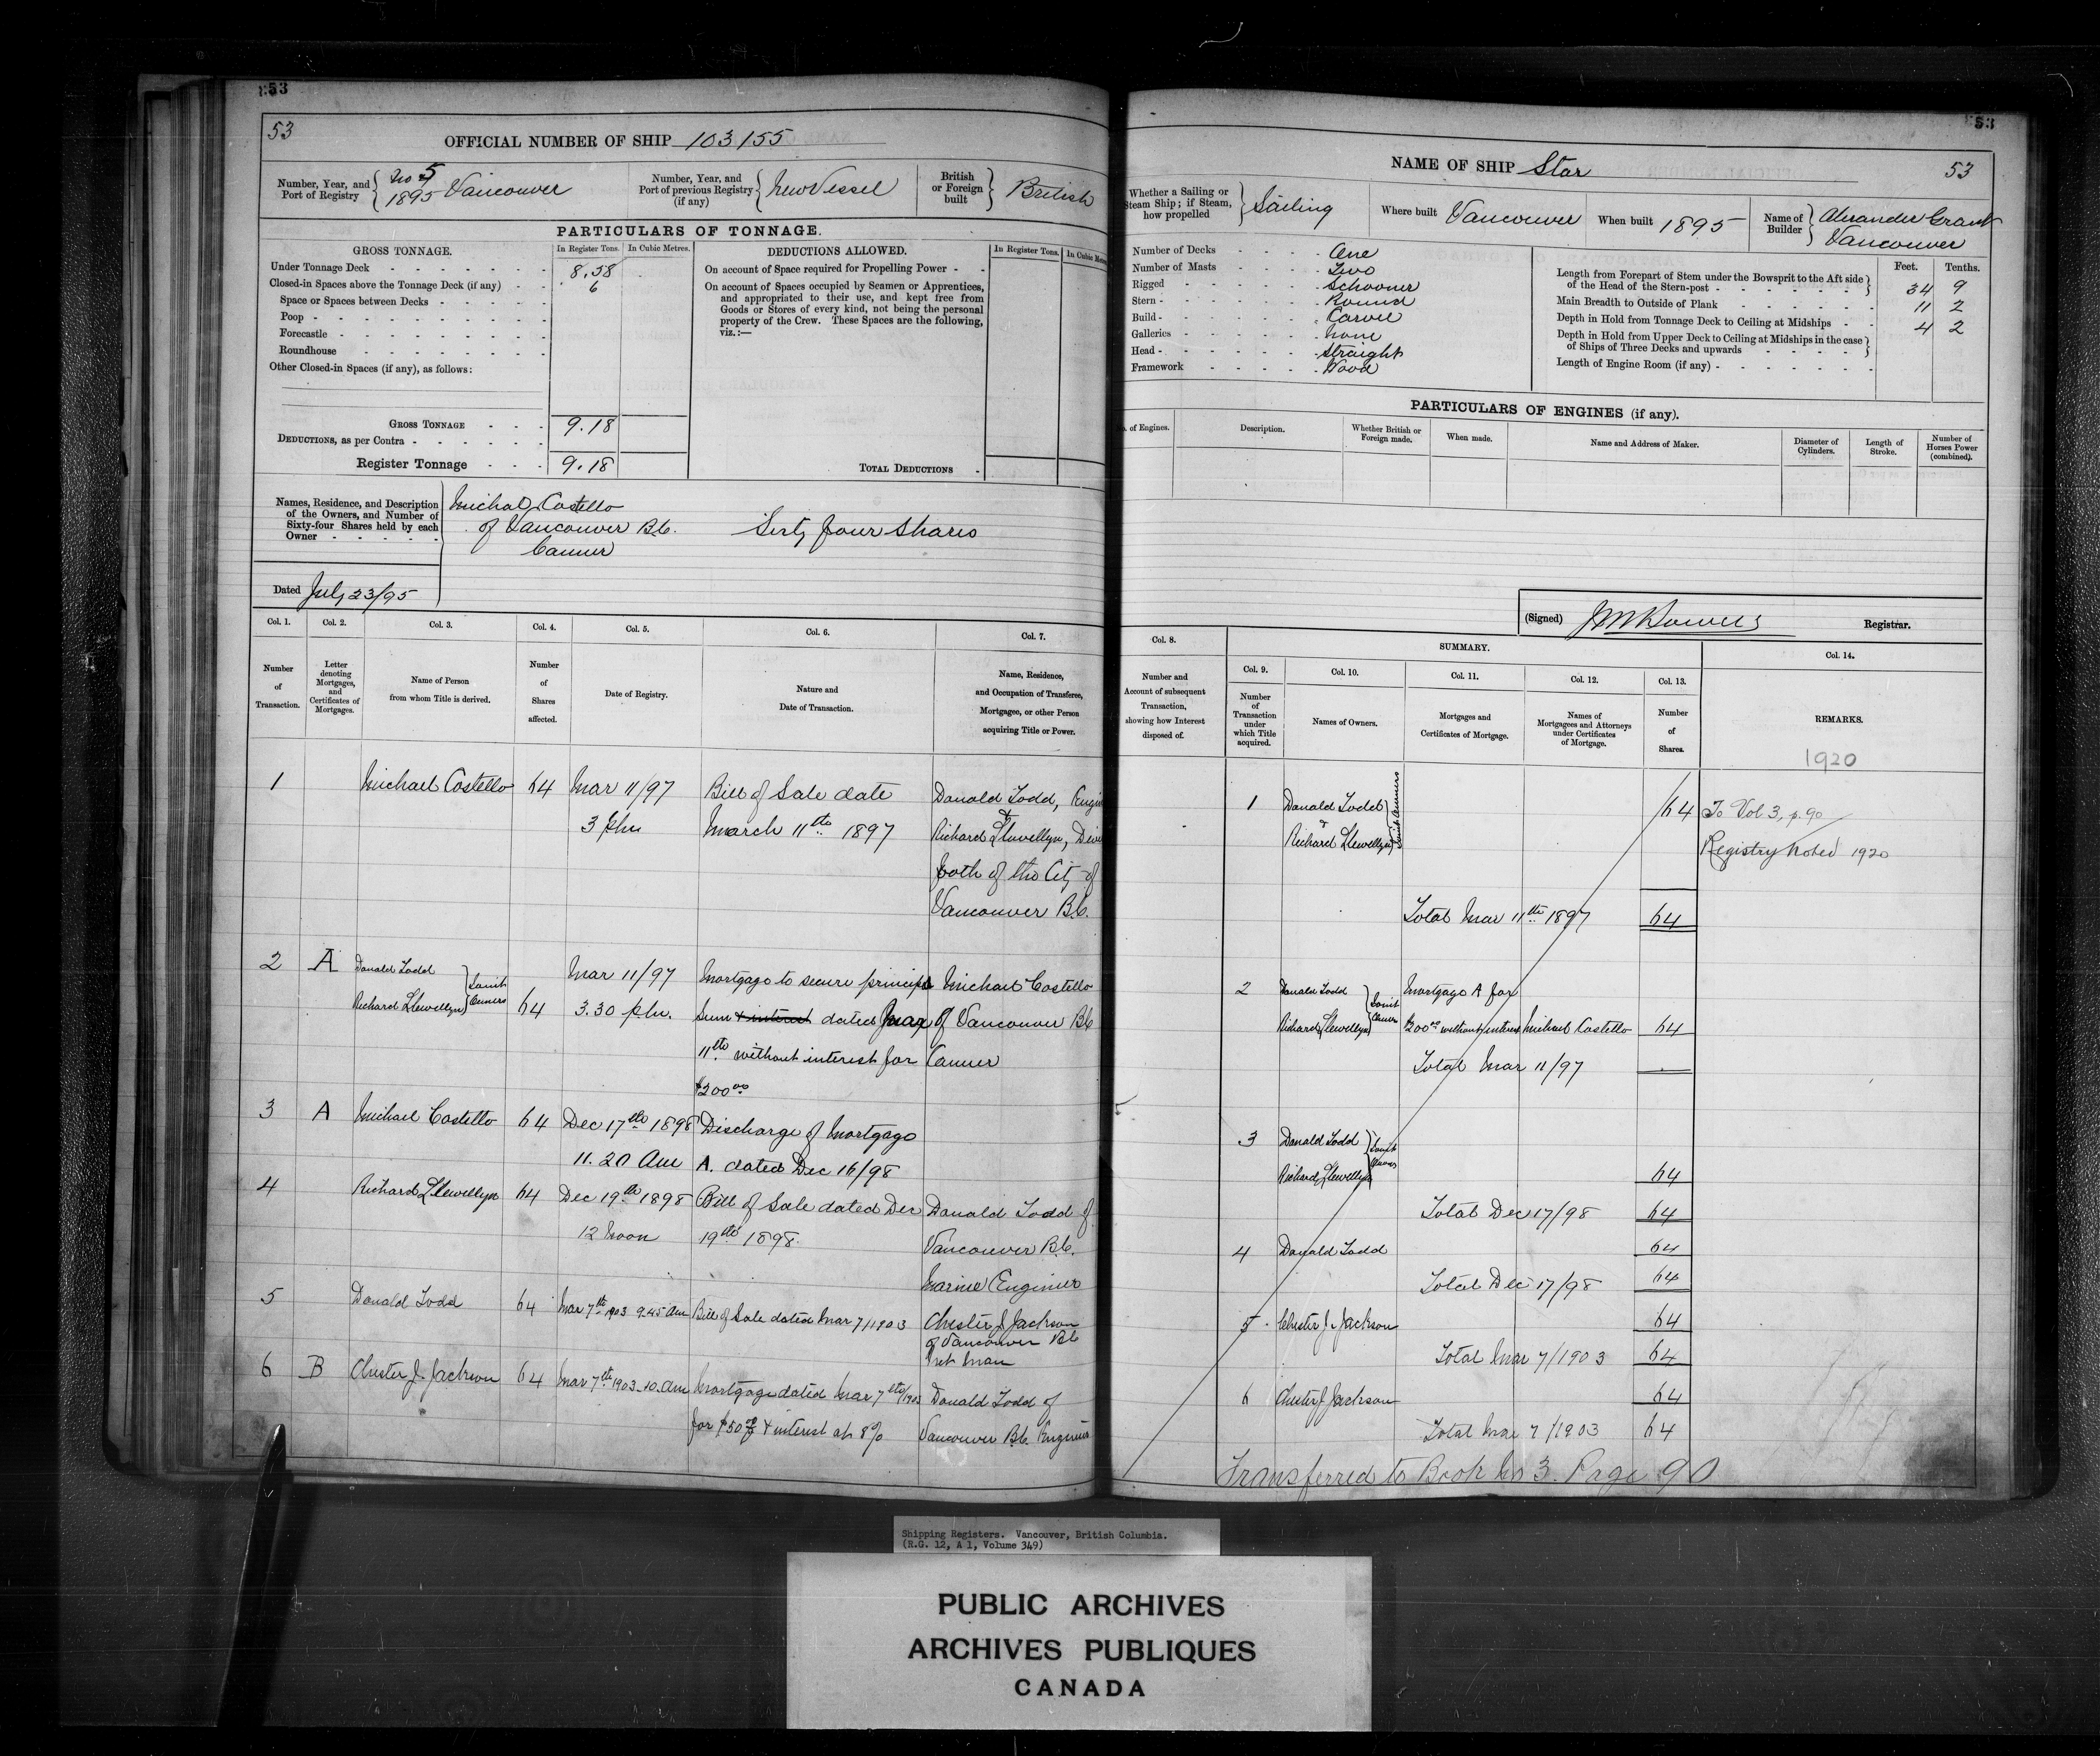 53
53
OFFICIAL NUMBER OF SHIP 103155
Number, Year, and Port of Registry { No 5 1895 Vancouver
Number, Year, and Port of previous Registry (if any) } New Vessel
British or Foreign built } British
PARTICULARS OF TONNAGE.
GROSS TONNAGE. In Register Tons. In Cubic Metres.
Under Tonnage Deck 8.58
Closed-in Spaces above the Tonnage Deck (if any) 6
Space or Spaces between Decks
Poop
Forecastle
Roundhouse
Other Closed-in Spaces (if any), as follows:
GROSS TONNAGE 9.18
DEDUCTIONS, as per Contra
Register Tonnage 9.18
DEDUCTIONS ALLOWED. In Register Tons.
On account of Space required for Propelling Power
On account of Spaces occupied by Seamen or Apprentices,
and appropriated to their use, and kept free from
Goods or Stores of every kind, not being the personal
property of the Crew. These Spaces are the following,
viz.:—
TOTAL DEDUCTIONS
Names, Residence, and Description
of the Owners, and Number of
Sixty-four Shares held by each
Owner
Michael Costello
of Vancouver B.C. Sixty four Shares
Canner
Dated July 23/95
Col. 1. Col. 2. Col. 3. Col. 4. Col. 5. Col. 6. Col. 7.
Number of Transaction.
Letter denoting Mortgages, and Certificates of Mortgages.
Name of Person from whom Title is derived.
Number of Shares affected.
Date of Registry.
Nature and Date of Transaction.
Name, Residence, and Occupation of Transferee, Mortgagee, or other Person acquiring Title or Power.
1 Michael Costello 64 Mar 11/97 Bill of Sale date Donald Todd,
3 pm March 11th 1897 & Richard Llewellyn,
both of the City of
Vancouver B.C.
2 A Donald Todd Richard Llewellyn } Joint Owners 64 Mar 11/97 Mortgage to secure principal Michael Costello
3.30 p.m. Sum & interest dated Mar of Vancouver BC
11th without interest for Canner
$200 00
3 A Michael Costello 64 Dec 17th 1898 Discharge of Mortgage
11.20 Am A. dated Dec 16/98
4 Richard Llewellyn 64 Dec 19th 1898 Bill of Sale dated Dec Donald Todd of
12 Noon 19th 1898 Vancouver B.C.
Marine Engineer
5 Donald Todd 64 Mar 7th 1903 9.45 Am Bill of Sale dated Mar 7/1903 Chester J Jackson
of Vancouver BC
6 B Chester J. Jackson 64 Mar 7th 1903 10. Am Mortgage dated Mar 7th/1903 Donald Todd of
for $50 & interest at 8% Vancouver B.C. Engineer
53
NAME OF SHIP Star 53
Whether a Sailing or Steam Ship; if Steam, how propelled } Sailing
Where built Vancouver
When built 1895
Name of Builder } Alexander Grant Vancouver
Number of Decks One
Number of Masts Two
Rigged Schooner
Stern Round
Build Carvel
Galleries None
Head Straight
Framework Wood
Feet. Tenths.
Length from Forepart of Stem under the Bowsprit to the Aft side of the Head of the Stern-post 34 9
Main Breadth to Outside of Plank 11 2
Depth in Hold from Tonnage Deck to Ceiling at Midships 4 2
Depth in Hold from Upper Deck to Ceiling at Midships in the case of Ships of Three Decks and upwards
Length of Engine Room (if any)
PARTICULARS OF ENGINES (if any).
of Engines. Description. Whether British or Foreign made. When made. Name and Address of Maker. Diameter of Cylinders. Length of Stroke. Number of Horses Power (combined).
(Signed) Registrar.
Col. 8. SUMMARY. Col. 14.
Col. 9. Col. 10. Col. 11. Col. 12. Col. 13.
Number and Account of subsequent Transaction, showing how Interest disposed of.
Number of Transaction under which Title acquired.
Names of Owners.
Mortgages and Certificates of Mortgage.
Names of Mortgagees and Attorneys under Certificates of Mortgage.
Number of Shares.
REMARKS.
1920
1 Donald Todd & Richard Llewellyn } Joint Owners 64 To Vol 3, p. 90
Registry Noted 1920
Total Mar 11th 1897 64
2 Donald Todd Richard Llewellyn } Joint Owners Mortgage A for
$200 00 without interest Michael Costello 64
Total Mar 11/97
3 Donald Todd Richard Llewellyn } Joint Owners 64
Total Dec 17/98 64
4 Donald Todd 64
Total Dec 17/98 64
5 Chester J. Jackson 64
Total Mar 7/1903 64
6 Chester J Jackson 64
Total Mar 7/1903 64
Transferred to Book No 3. Page 90
Shipping Registers. Vancouver, British Columbia.
(R.G. 12, A 1, Volume 349)
PUBLIC ARCHIVES
ARCHIVES PUBLIQUES
CANADA